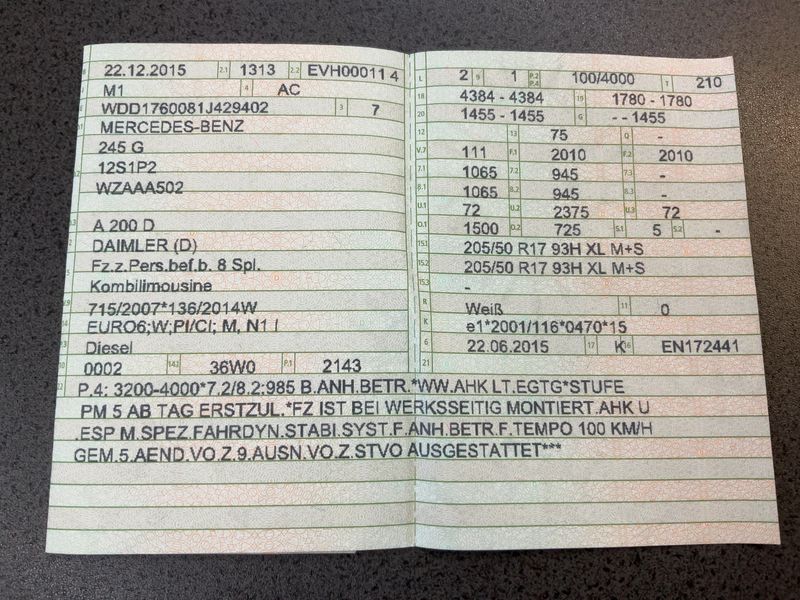 22.12.2015 2.1 1313 2.2 EVH00011 4
M1 4 AC
WDD1760081J429402 3 7
MERCEDES-BENZ
245 G
12S1P2
WZAAA502
A 200 D
DAIMLER (D)
Fz.z.Pers.bef.b. 8 Spl.
Kombilimousine
715/2007*136/2014W
EURO6;W;PI/CI; M, N1 I
Diesel
0002 14.1 36W0 P.1 2143
L 2 9 1 P.2 P.4 100/4000 T 210
18 4384 - 4384 19 1780 - 1780
20 1455 - 1455 G - - 1455
12 13 75 Q -
V.7 111 F.1 2010 F.2 2010
7.1 1065 7.2 945 7.3 -
8.1 1065 8.2 945 8.3 -
U.1 72 U.2 2375 U.3 72
O.1 1500 O.2 725 S.1 5 S.2 -
15.1 205/50 R17 93H XL M+S
15.2 205/50 R17 93H XL M+S
15.3 -
R Weiß 11 0
K e1*2001/116*0470*15
6 22.06.2015 17 K 16 EN172441
21
P.4: 3200-4000*7.2/8.2:985 B.ANH.BETR.*WW.AHK LT.EGTG*STUFE
PM 5 AB TAG ERSTZUL.*FZ IST BEI WERKSSEITIG MONTIERT.AHK U
.ESP M.SPEZ.FAHRDYN.STABI.SYST.F.ANH.BETR.F.TEMPO 100 KM/H
GEM.5.AEND.VO.Z.9.AUSN.VO.Z.STVO AUSGESTATTET***